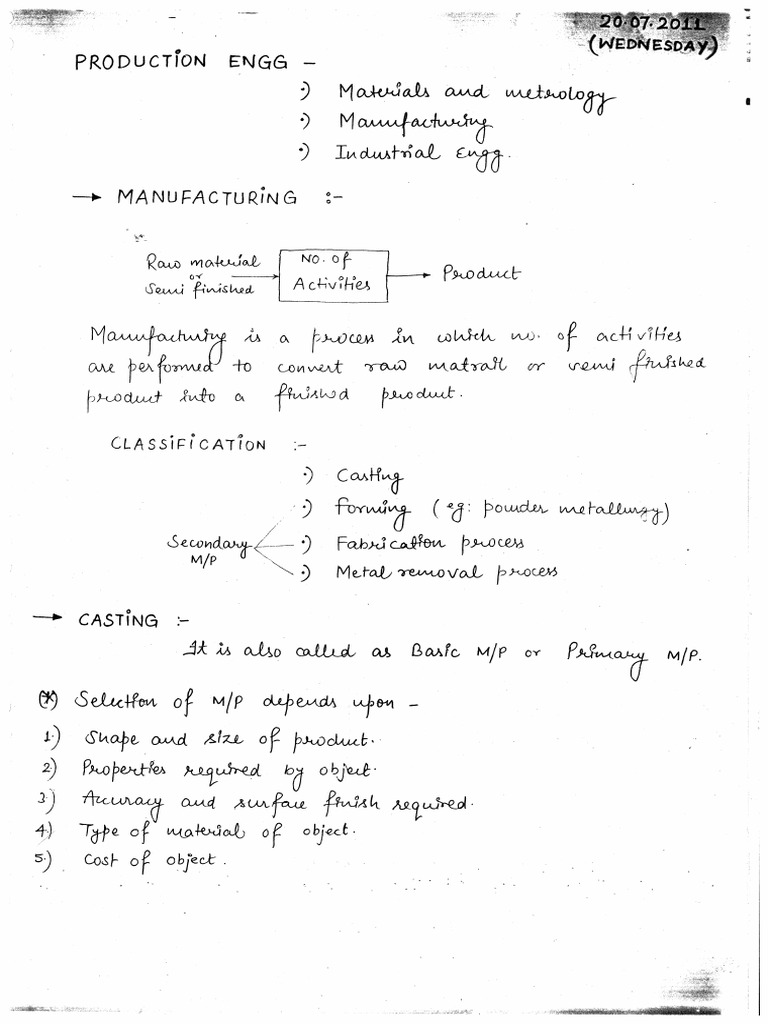 20.07.2011
(WEDNESDAY)
PRODUCTION ENGG –
·) Materials and metrology
·) Manufacturing
·) Industrial Engg.
→ MANUFACTURING :-
Raw material
or
Semi finished
No. of
Activities
Product
Manufacturing is a process in which no. of activities
are performed to convert raw matrail or semi finished
product into a finished product.
CLASSIFICATION :-
·) Casting
·) Forming (eg: powder metallurgy)
Secondary
M/P
·) Fabrication process
·) Metal removal process
→ CASTING :-
It is also called as Basic M/P or Primary M/P.
(*) Selection of M/P depends upon –
1.) Shape and size of product.
2) Properties required by object.
3) Accuracy and surface finish required.
4.) Type of material of object.
5.) Cost of object.